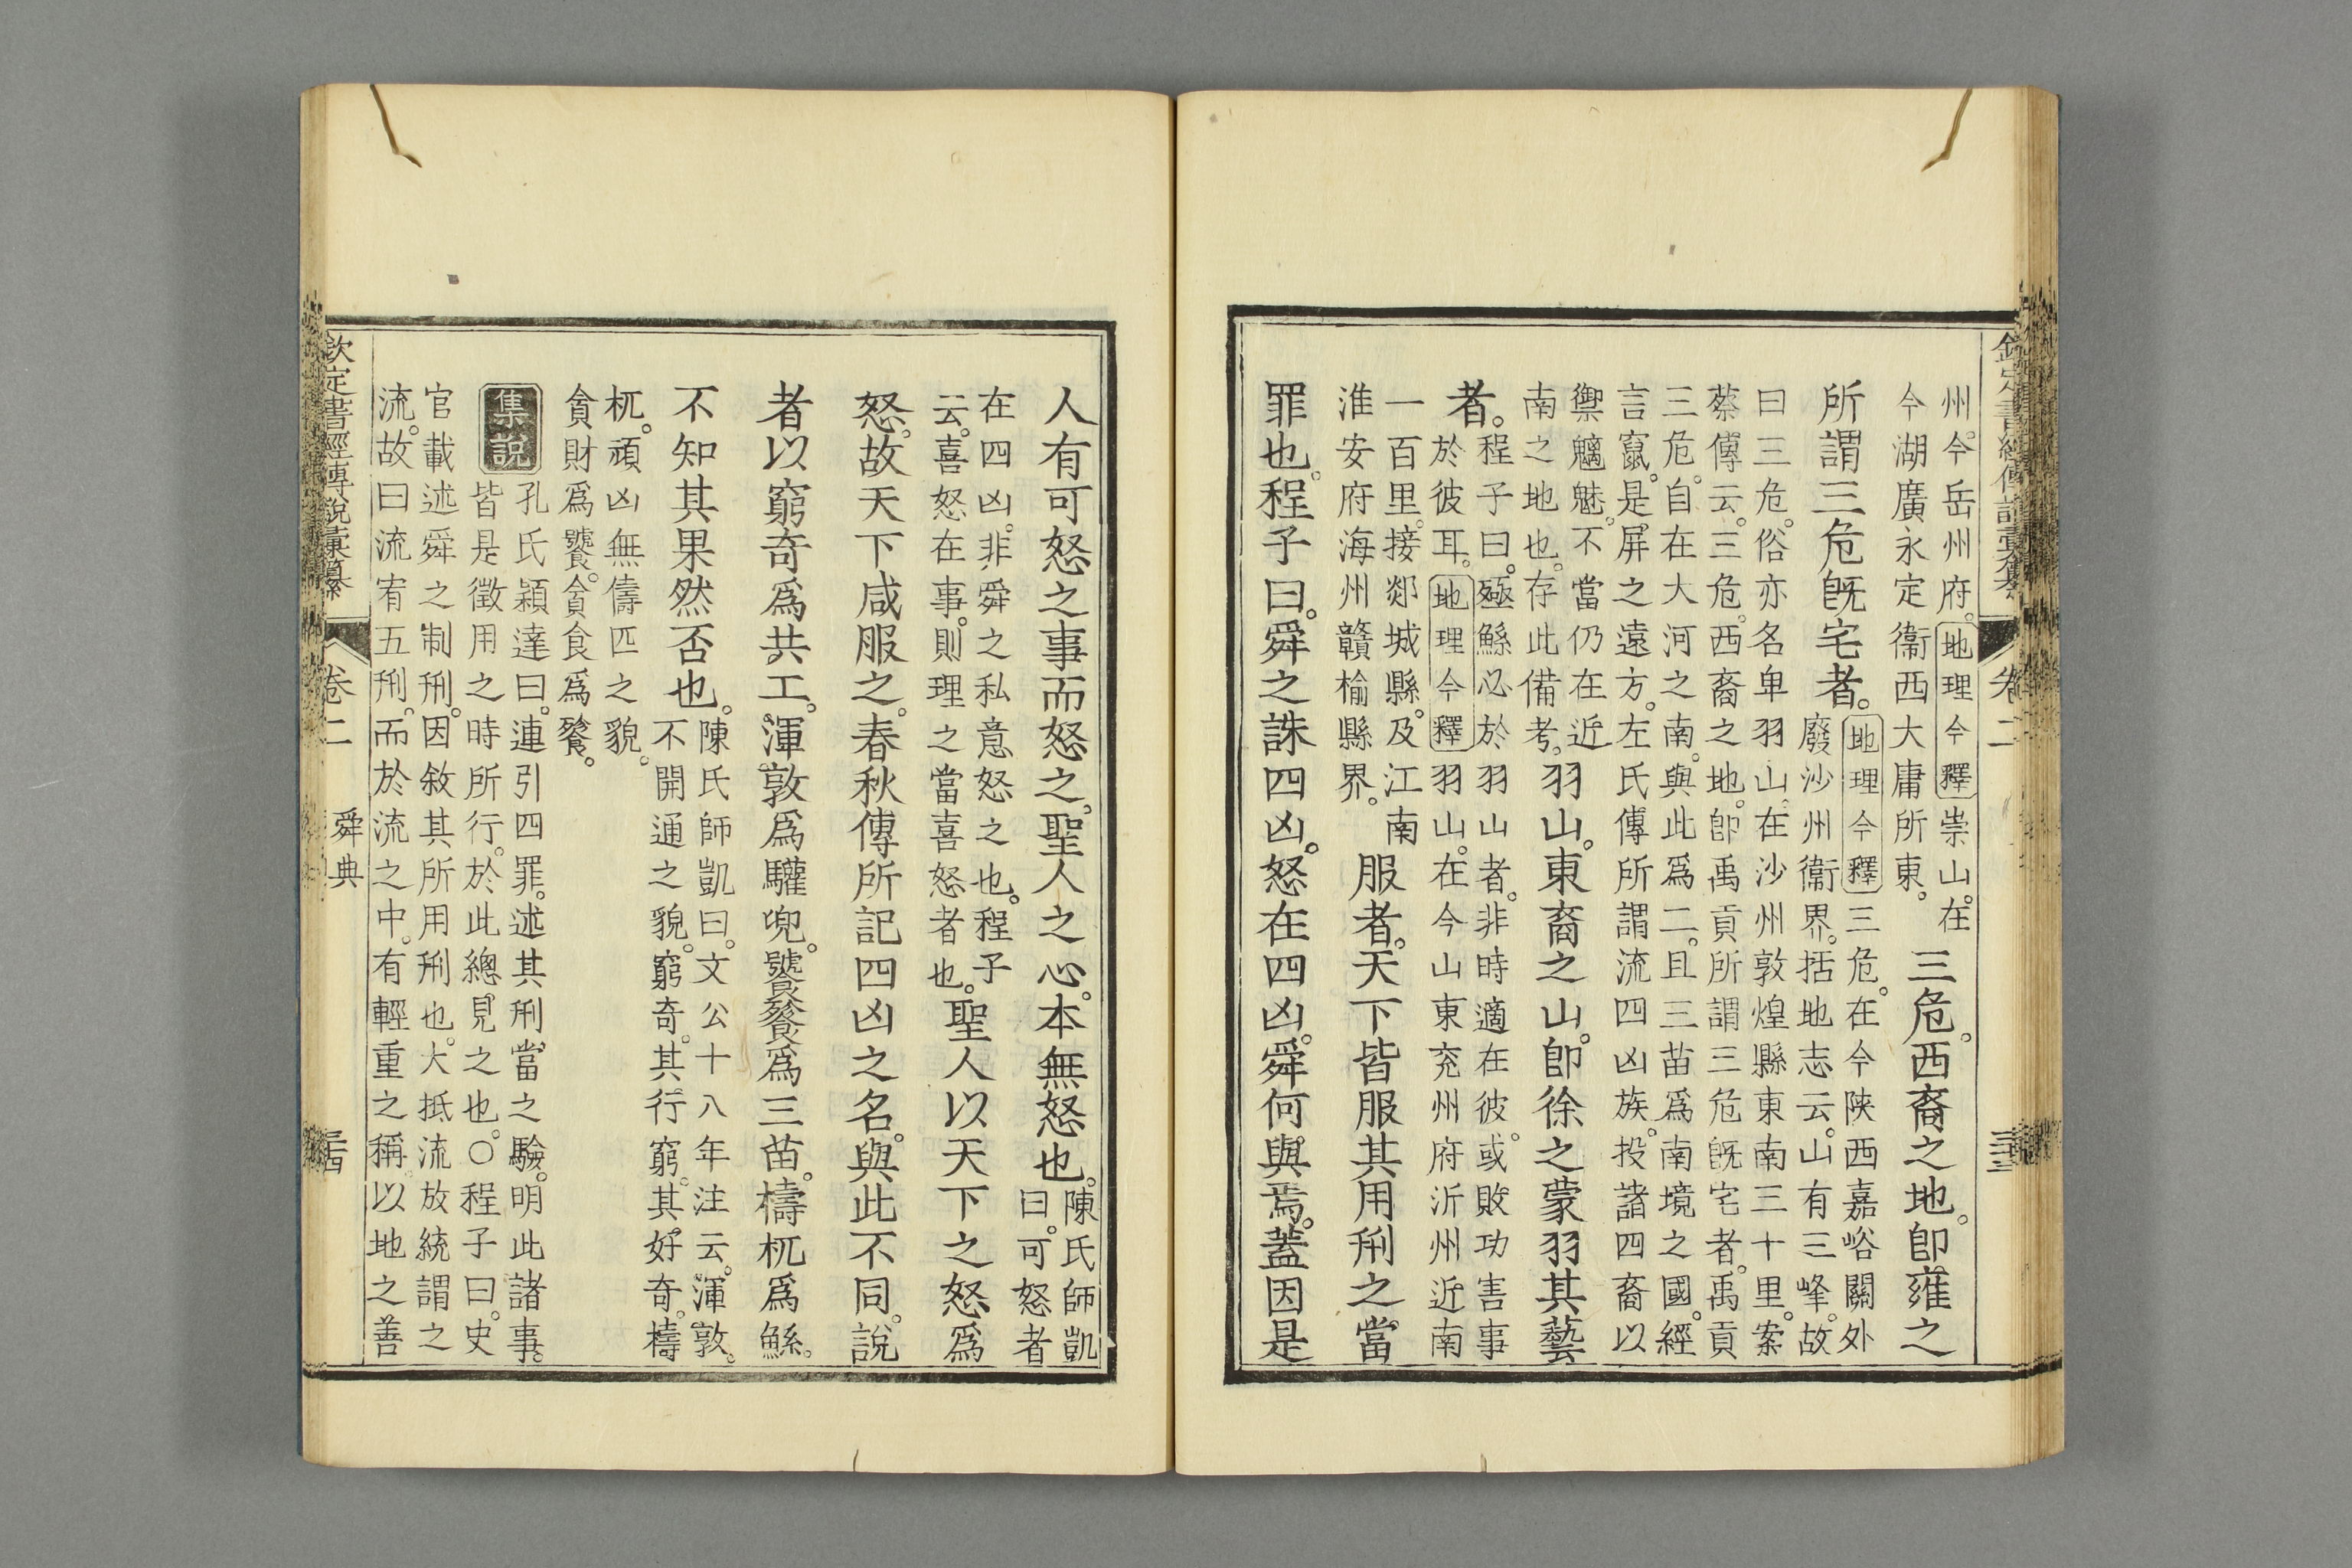 欽定書經傳說彙纂 卷二 三十三
州。今岳州府。地理今釋崇山。在
今湖廣永定衞西大庸所東。
三危。西裔之地。卽雍之
所謂三危旣宅者。
地理今釋三危。在今陝西嘉峪關外
廢沙州衞界。括地志云。山有三峰。故
曰三危。俗亦名卑羽山。在沙州敦煌縣東南三十里。案
蔡傳云。三危。西裔之地。卽禹貢所謂三危旣宅者。禹貢
三危。自在大河之南。與此爲二。且三苗爲南境之國。經
言竄。是屏之遠方。左氏傳所謂流四凶族。投諸四裔以
禦魑魅。不當仍在近
南之地也。存此備考。
羽山。東裔之山。卽徐之蒙羽其藝
者。
程子曰。殛鯀必於羽山者。非時適在彼。或敗功害事
於彼耳。地理今釋羽山。在今山東兖州府沂州近南
一百里。接郯城縣。及江南
淮安府海州贛榆縣界。
服者。天下皆服其用刑之當
罪也。程子曰。舜之誅四凶。怒在四凶。舜何與焉。蓋因是
人有可怒之事而怒之。聖人之心。本無怒也。
陳氏師凱
曰。可怒者
在四凶。非舜之私意怒之也。程子
云。喜怒在事。則理之當喜怒者也。
聖人以天下之怒爲
怒。故天下咸服之。春秋傳所記四凶之名。與此不同。說
者以窮奇爲共工。渾敦爲驩兜。饕餮爲三苗。檮杌爲鯀。
不知其果然否也。
陳氏師凱曰。文公十八年注云。渾敦。
不開通之貌。窮奇。其行窮。其好奇。檮
杌。頑凶無儔匹之貌。
貪財爲饕。貪食爲餮。
集說
孔氏穎達曰。連引四罪。述其刑當之驗。明此諸事。
皆是徵用之時所行。於此總見之也。○程子曰。史
官載述舜之制刑。因敘其所用刑也。大抵流放統謂之
流。故曰流宥五刑。而於流之中。有輕重之稱。以地之善
欽定書經傳說彙纂 卷二 舜典 三十四